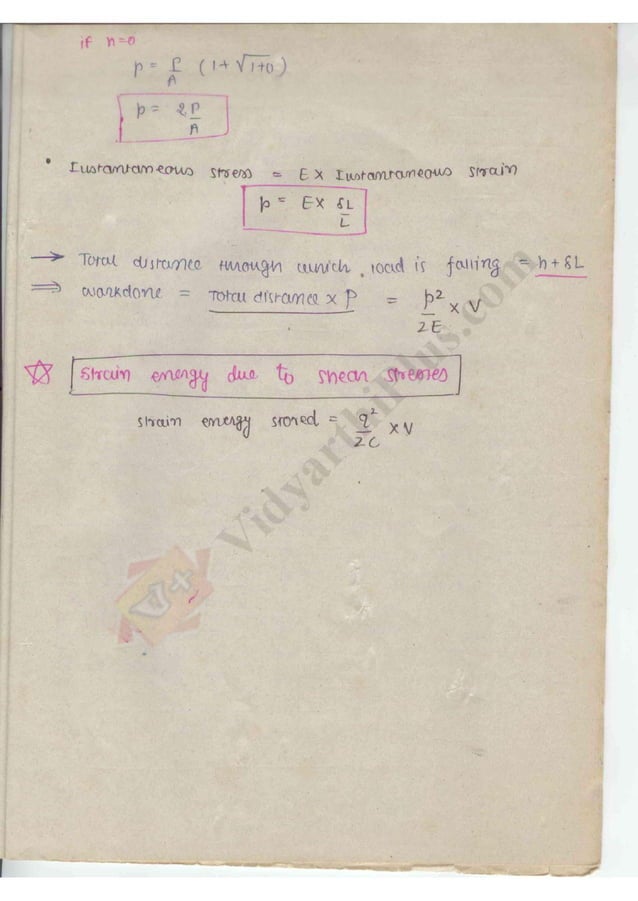 if h=0
p = P/A (1+ √1+0)
p = 2P/A
• Instantaneous stress = E × Instantaneous strain
p = E× δL/L
→ Total distance through which load is falling = h + δL
⇒ workdone = Total distance × P = p²/2E × V
☆ Strain energy due to shear stresses
strain energy stored = q²/2C × V
VidyarthiPlus.com
V+